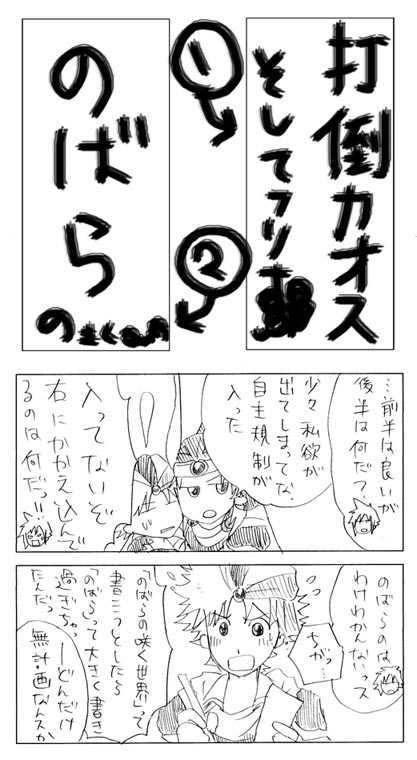 打倒カオス
そしてフリ
①
のばら
②
の
…前半は良いが
後半は何だっ?
少々私欲が
出てしまってな
自主規制が
入った
入ってないぞ
右にかかえ込んで
るのは何だっ!!
のばらのは
わけわかんないっス
ちがっ…
「のばらの咲く世界」って
書こうとしたら
「のばら」って大きく書き
過ぎちゃっ
たんだっ
どんだけ
無計画なんスか